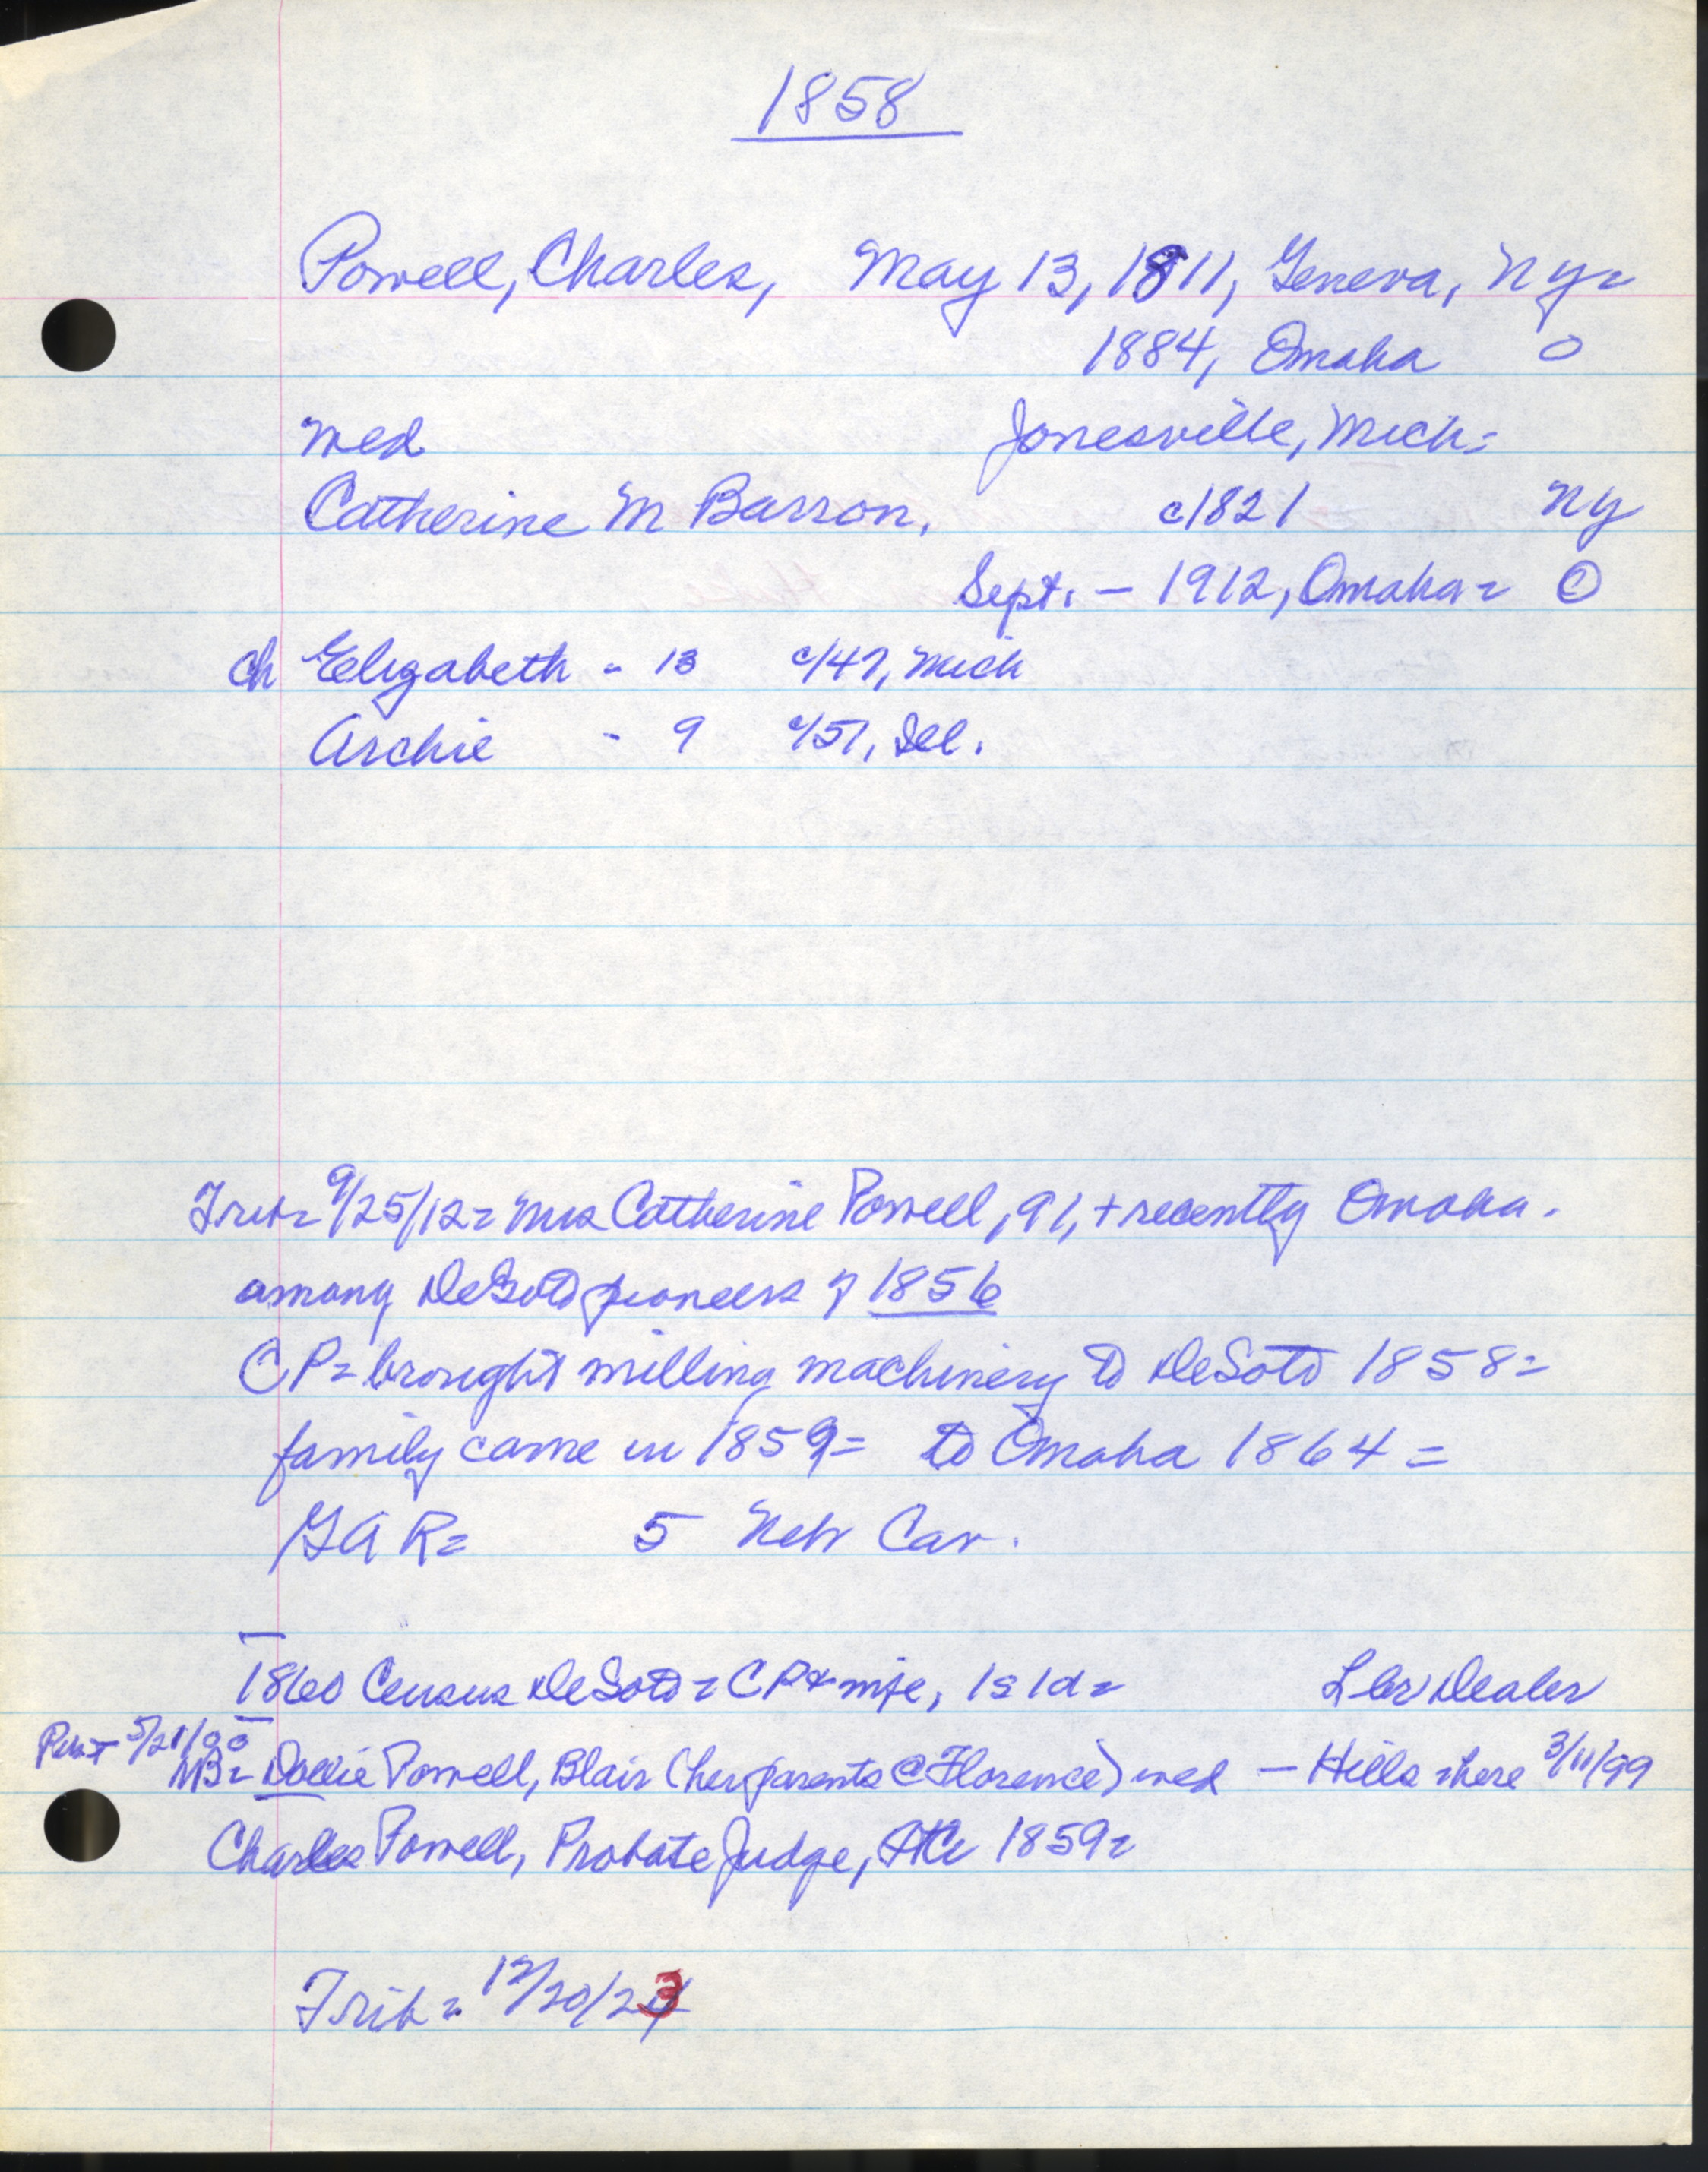 1858
Powell, Charles, May 13, 1811, Geneva, NY=
1884, Omaha O
wed Jonesville, Mich=
Catherine M Barron, c1821 NY
Sept. — 1912, Omaha= ©
ch Elizabeth - 13 c/47, Mich
Archie - 9 c/51, Ill.
Trib= 9/25/12= Mrs Catherine Powell, 91, + recently Omaha.
among DeSoto pioneers of 1856
CP= brought milling machinery to DeSoto 1858=
family came in 1859= to Omaha 1864=
GAR= 5 Neb Cav.
1860 Census DeSoto= CP & wife, 1s 1d= Lbr Dealer
5/21/90
MB= Dollie Powell, Blair (her parents @ Florence) wed — Hills there 3/11/99
Charles Powell, Probate Judge, 1859=
Trib= 12/20/23